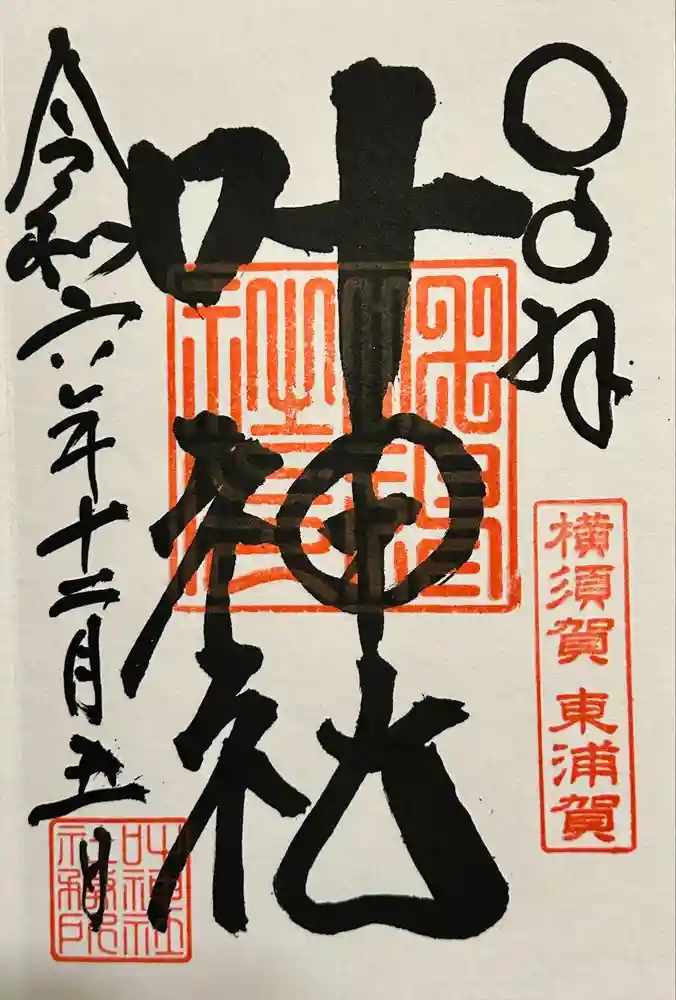 奉拝
横須賀 東浦賀
叶神社
令和六年十二月五日
叶神社
社務所